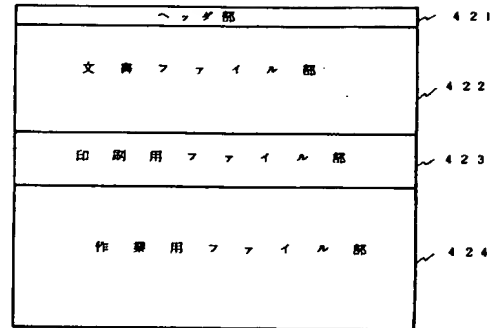 ヘッダ部 421
文書ファイル部 422
印刷用ファイル部 423
作業用ファイル部 424